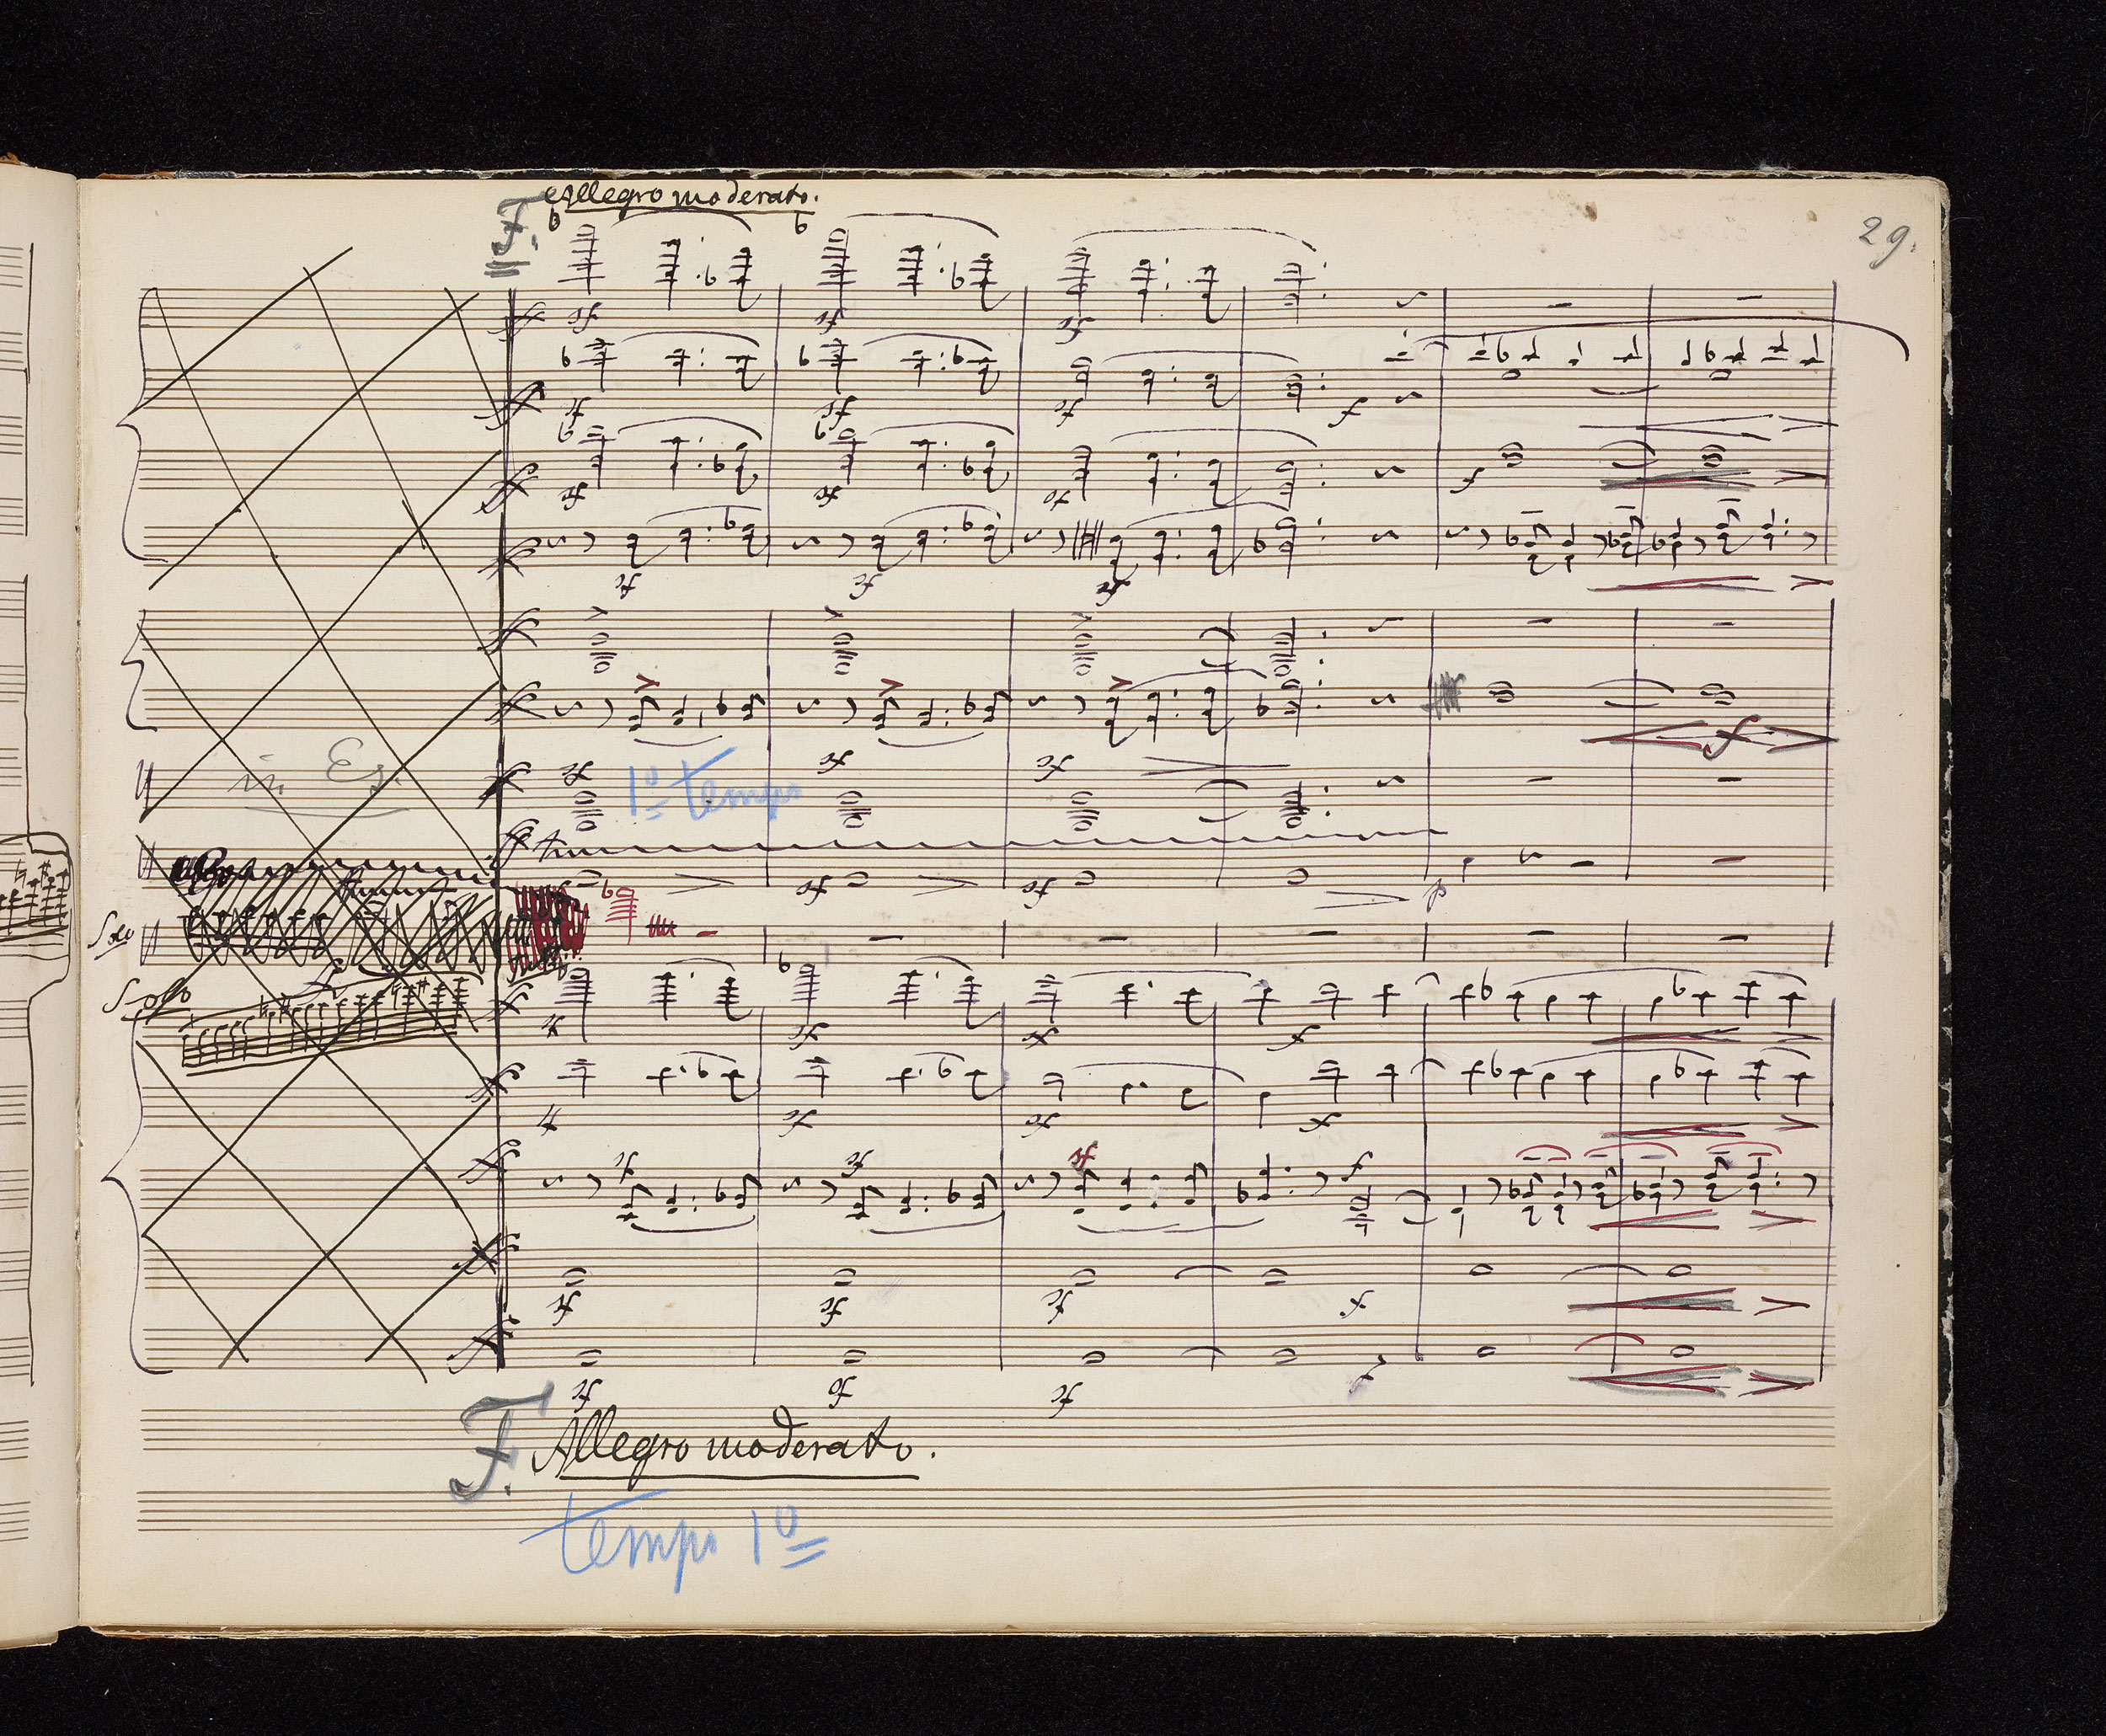 F. Allegro moderato.
29.
1º tempo
in Es.
Solo
Solo
F. Allegro moderato.
tempo 1º